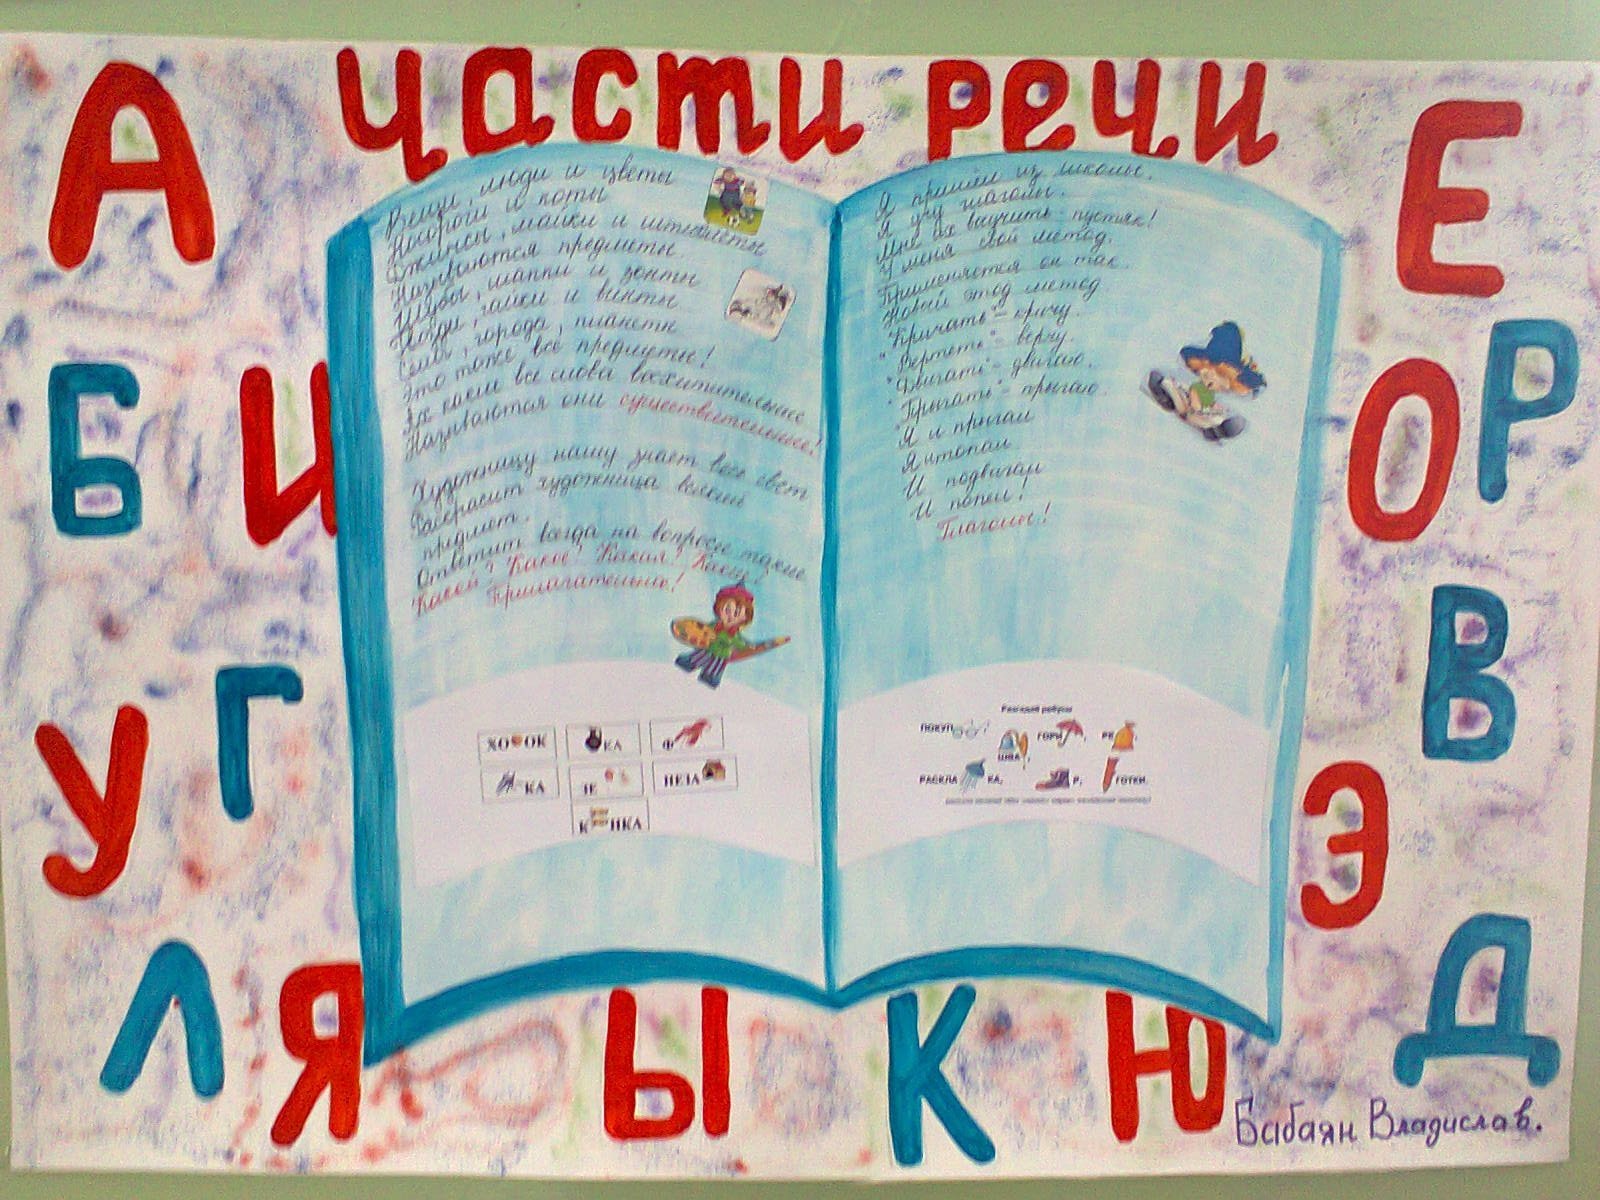 части речи
А
Е
Б
И
О
Р
У
Г
В
Э
Л
Я
Ы
К
Ю
Д
Вещи, люди и цветы
Носороги и коты
Джинсы, майки и штиблеты
Называются предметы.
Шубы, шапки и зонты
Гвозди, гайки и винты
Сёла, города, планеты
Это тоже всё предметы!
Ах какие все слова восхитительные
Называются они существительные!
Художницу нашу знает весь свет
Раскрасит художница всякий
предмет.
Ответит всегда на вопросы такие
Какой? Какое? Какая? Какие?
Прилагательные!
ХО ОК
КА
Ф
КА
ЗЕ
НЕЗА
К ИКА
Я пришёл из школы.
Я учу глаголы.
Мне их выучить - пустяк!
У меня свой метод.
Применяется он так.
Новый этод метод.
"Кричать" - кричу.
"Вертеть" - верчу.
"Двигать" - двигаю.
"Прыгать" - прыгаю.
Я и прыгал
Я и топал
И подвигал
И попел!
Глаголы!
Разгадай ребусы
ПОКУП
ГОРИ ,
РЕ ,
ШВА ,
РАСКЛА КА,
Р,
ГОТКИ.
Бабаян Владислав.